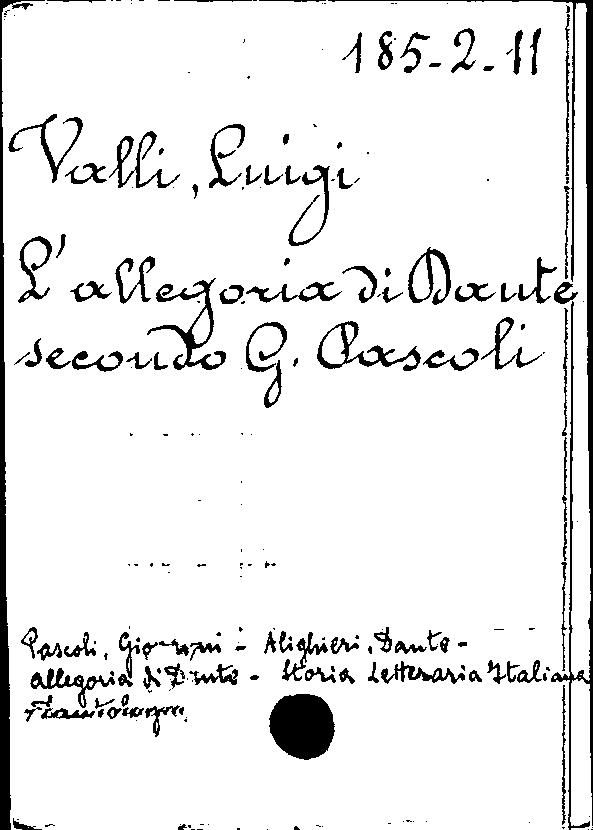 185-2-11
Valli, Luigi
L'allegoria di Dante
secondo G. Pascoli
Pascoli, Giovanni - Alighieri, Dante -
allegoria di Dante - Storia Letteraria Italiana